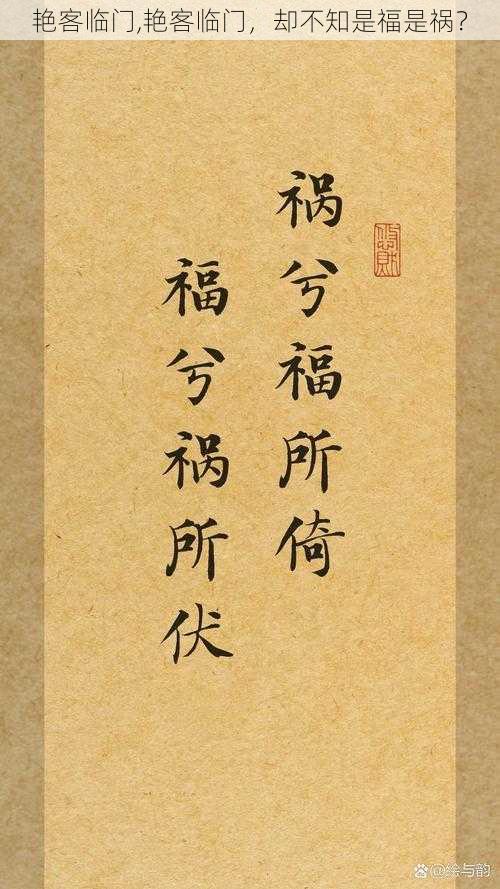 艳客临门,艳客临门，却不知是福是祸？
祸兮福所倚
福兮祸所伏
@绘与韵